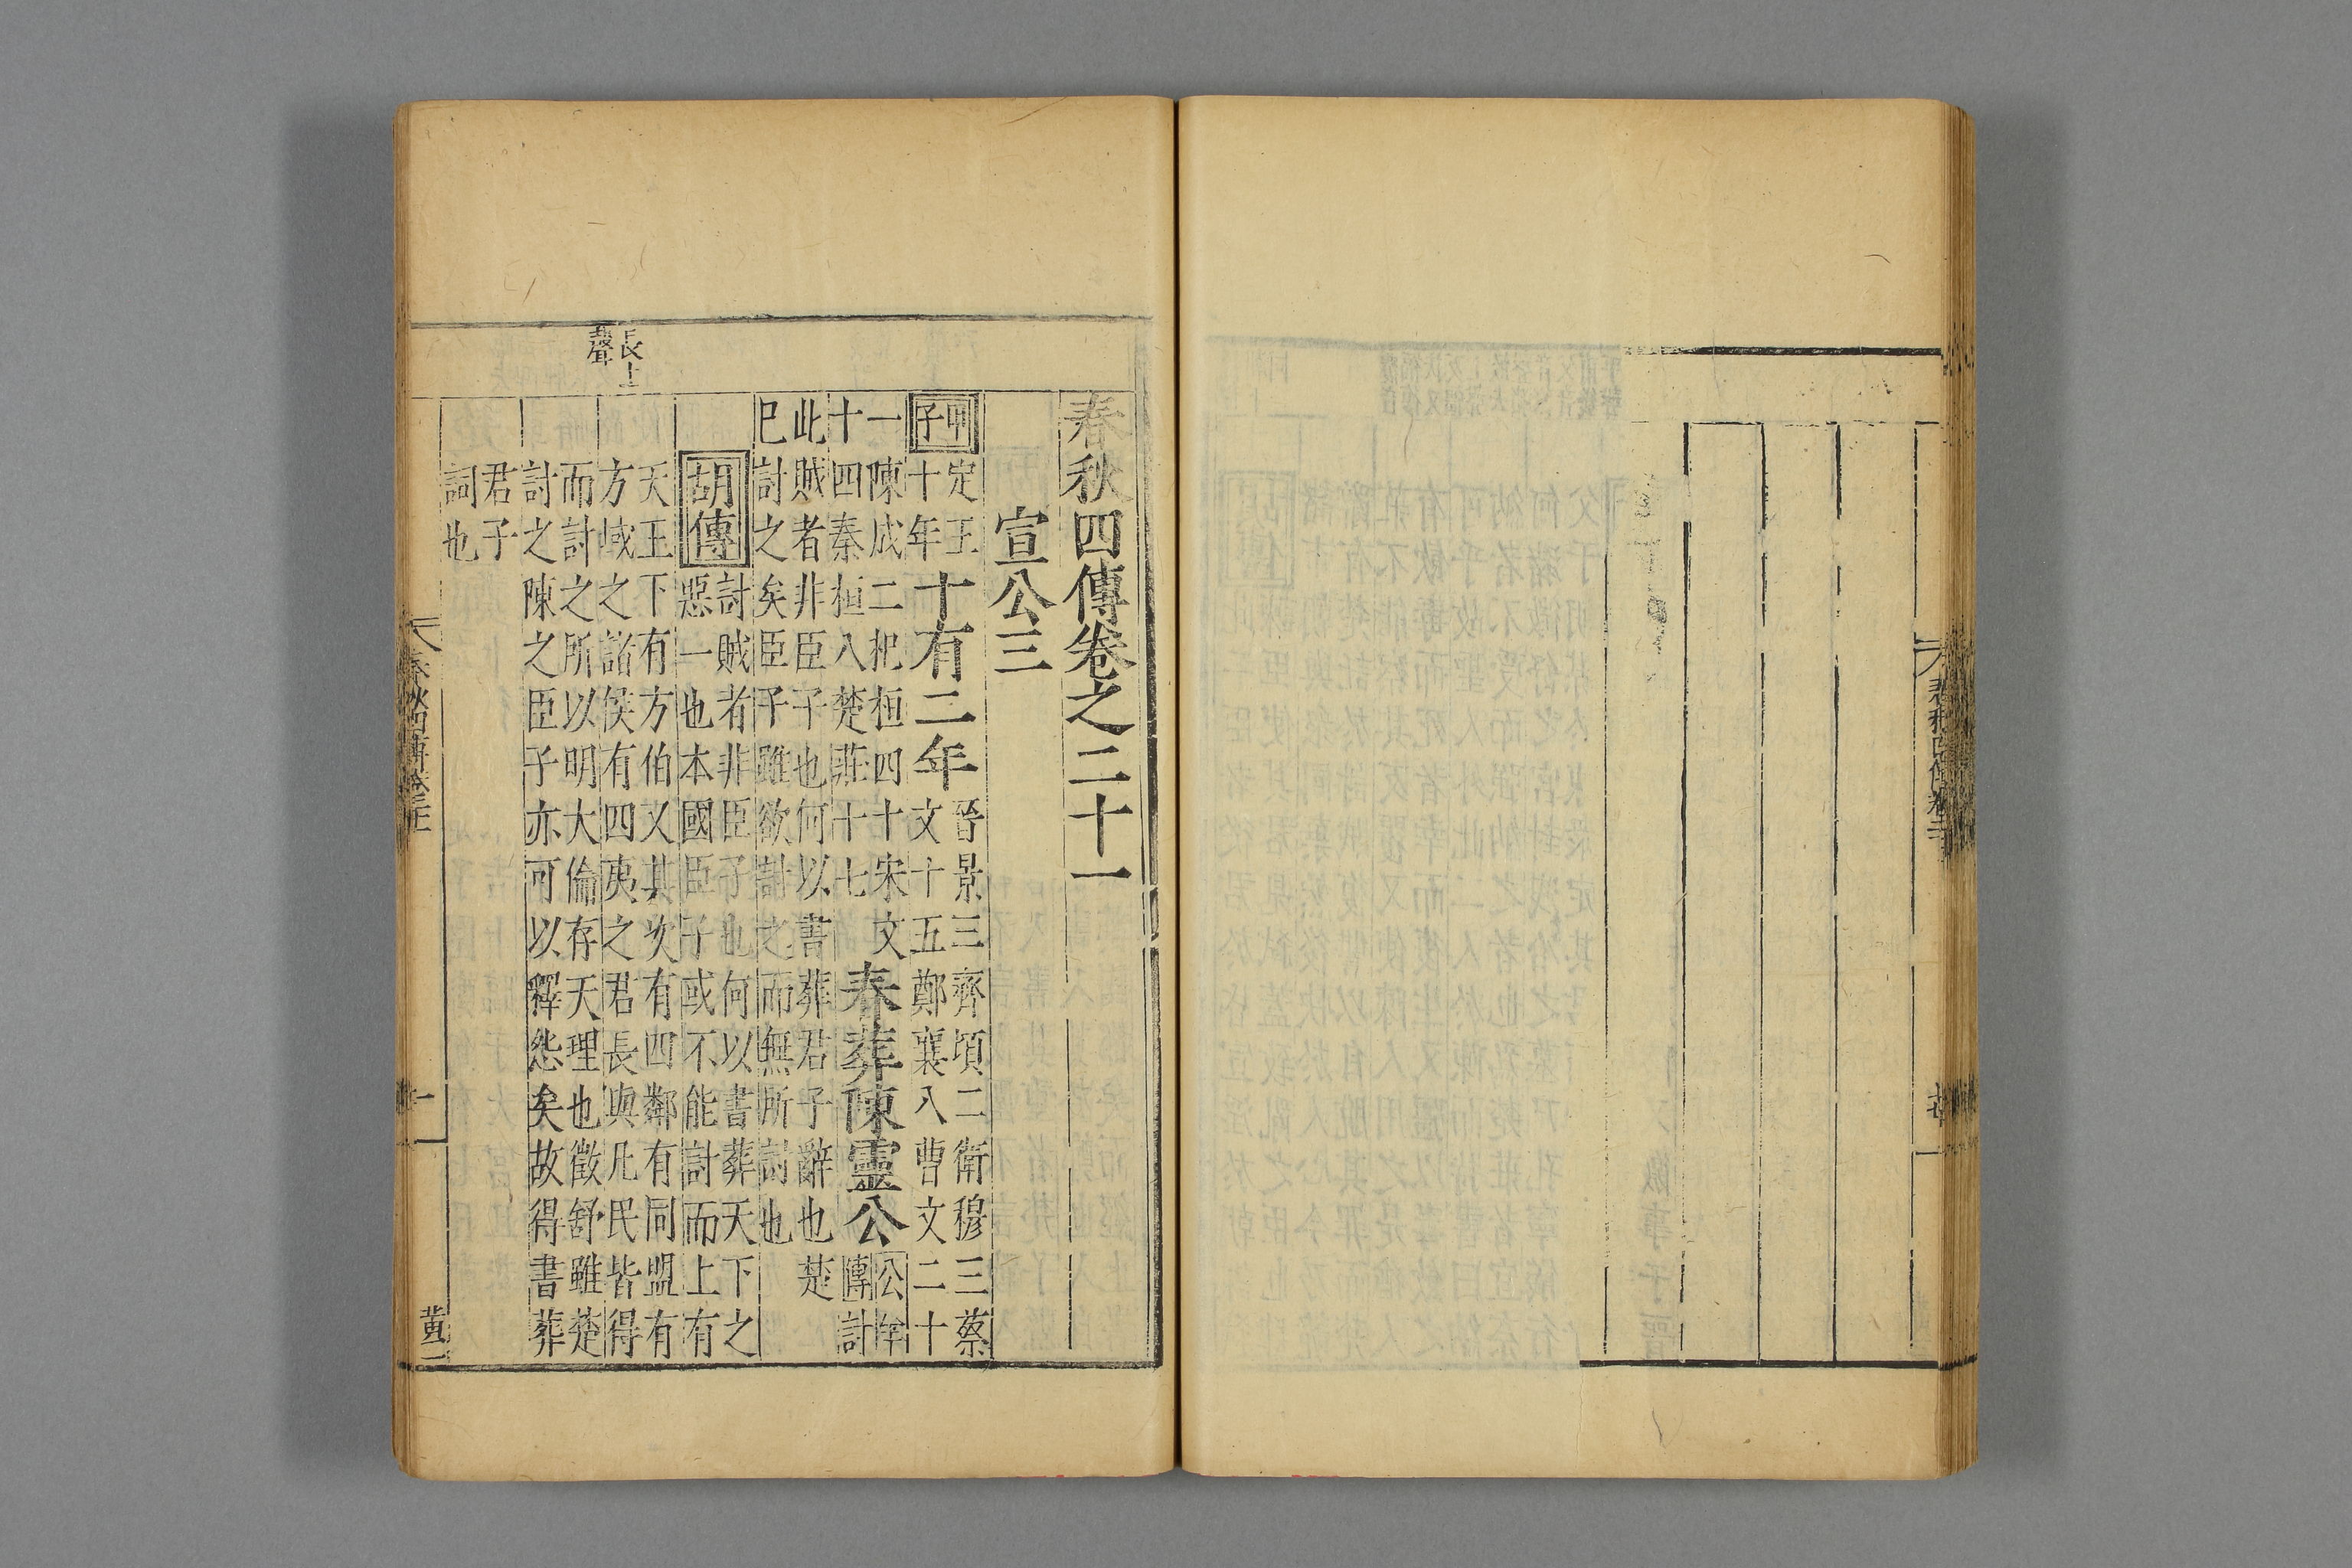 春秋四傳卷之二十一
宣公三
甲子
定王
十年
十有二年
晉景三齊頃二衛穆三蔡
文十五鄭襄八曹文二十
一陳成二杞桓四十宋文
十四秦桓八楚莊十七
春葬陳靈公
公羊
傳討
此賊者非臣子也何以書葬君子辭也楚
已討之矣臣子雖欲討之而無所討也
胡傳
討賊者非臣子也何以書葬天下之
惡一也本國臣子或不能討而上有
長上
聲
天王下有方伯又其次有四鄰有同盟有
方域之諸侯有四夷之君長與凡民皆得
而討之所以明大倫存天理也徵舒雖楚
討之陳之臣子亦可以釋怨矣故得書葬
君子
詞也
春秋四傳卷二十一
一
黄二